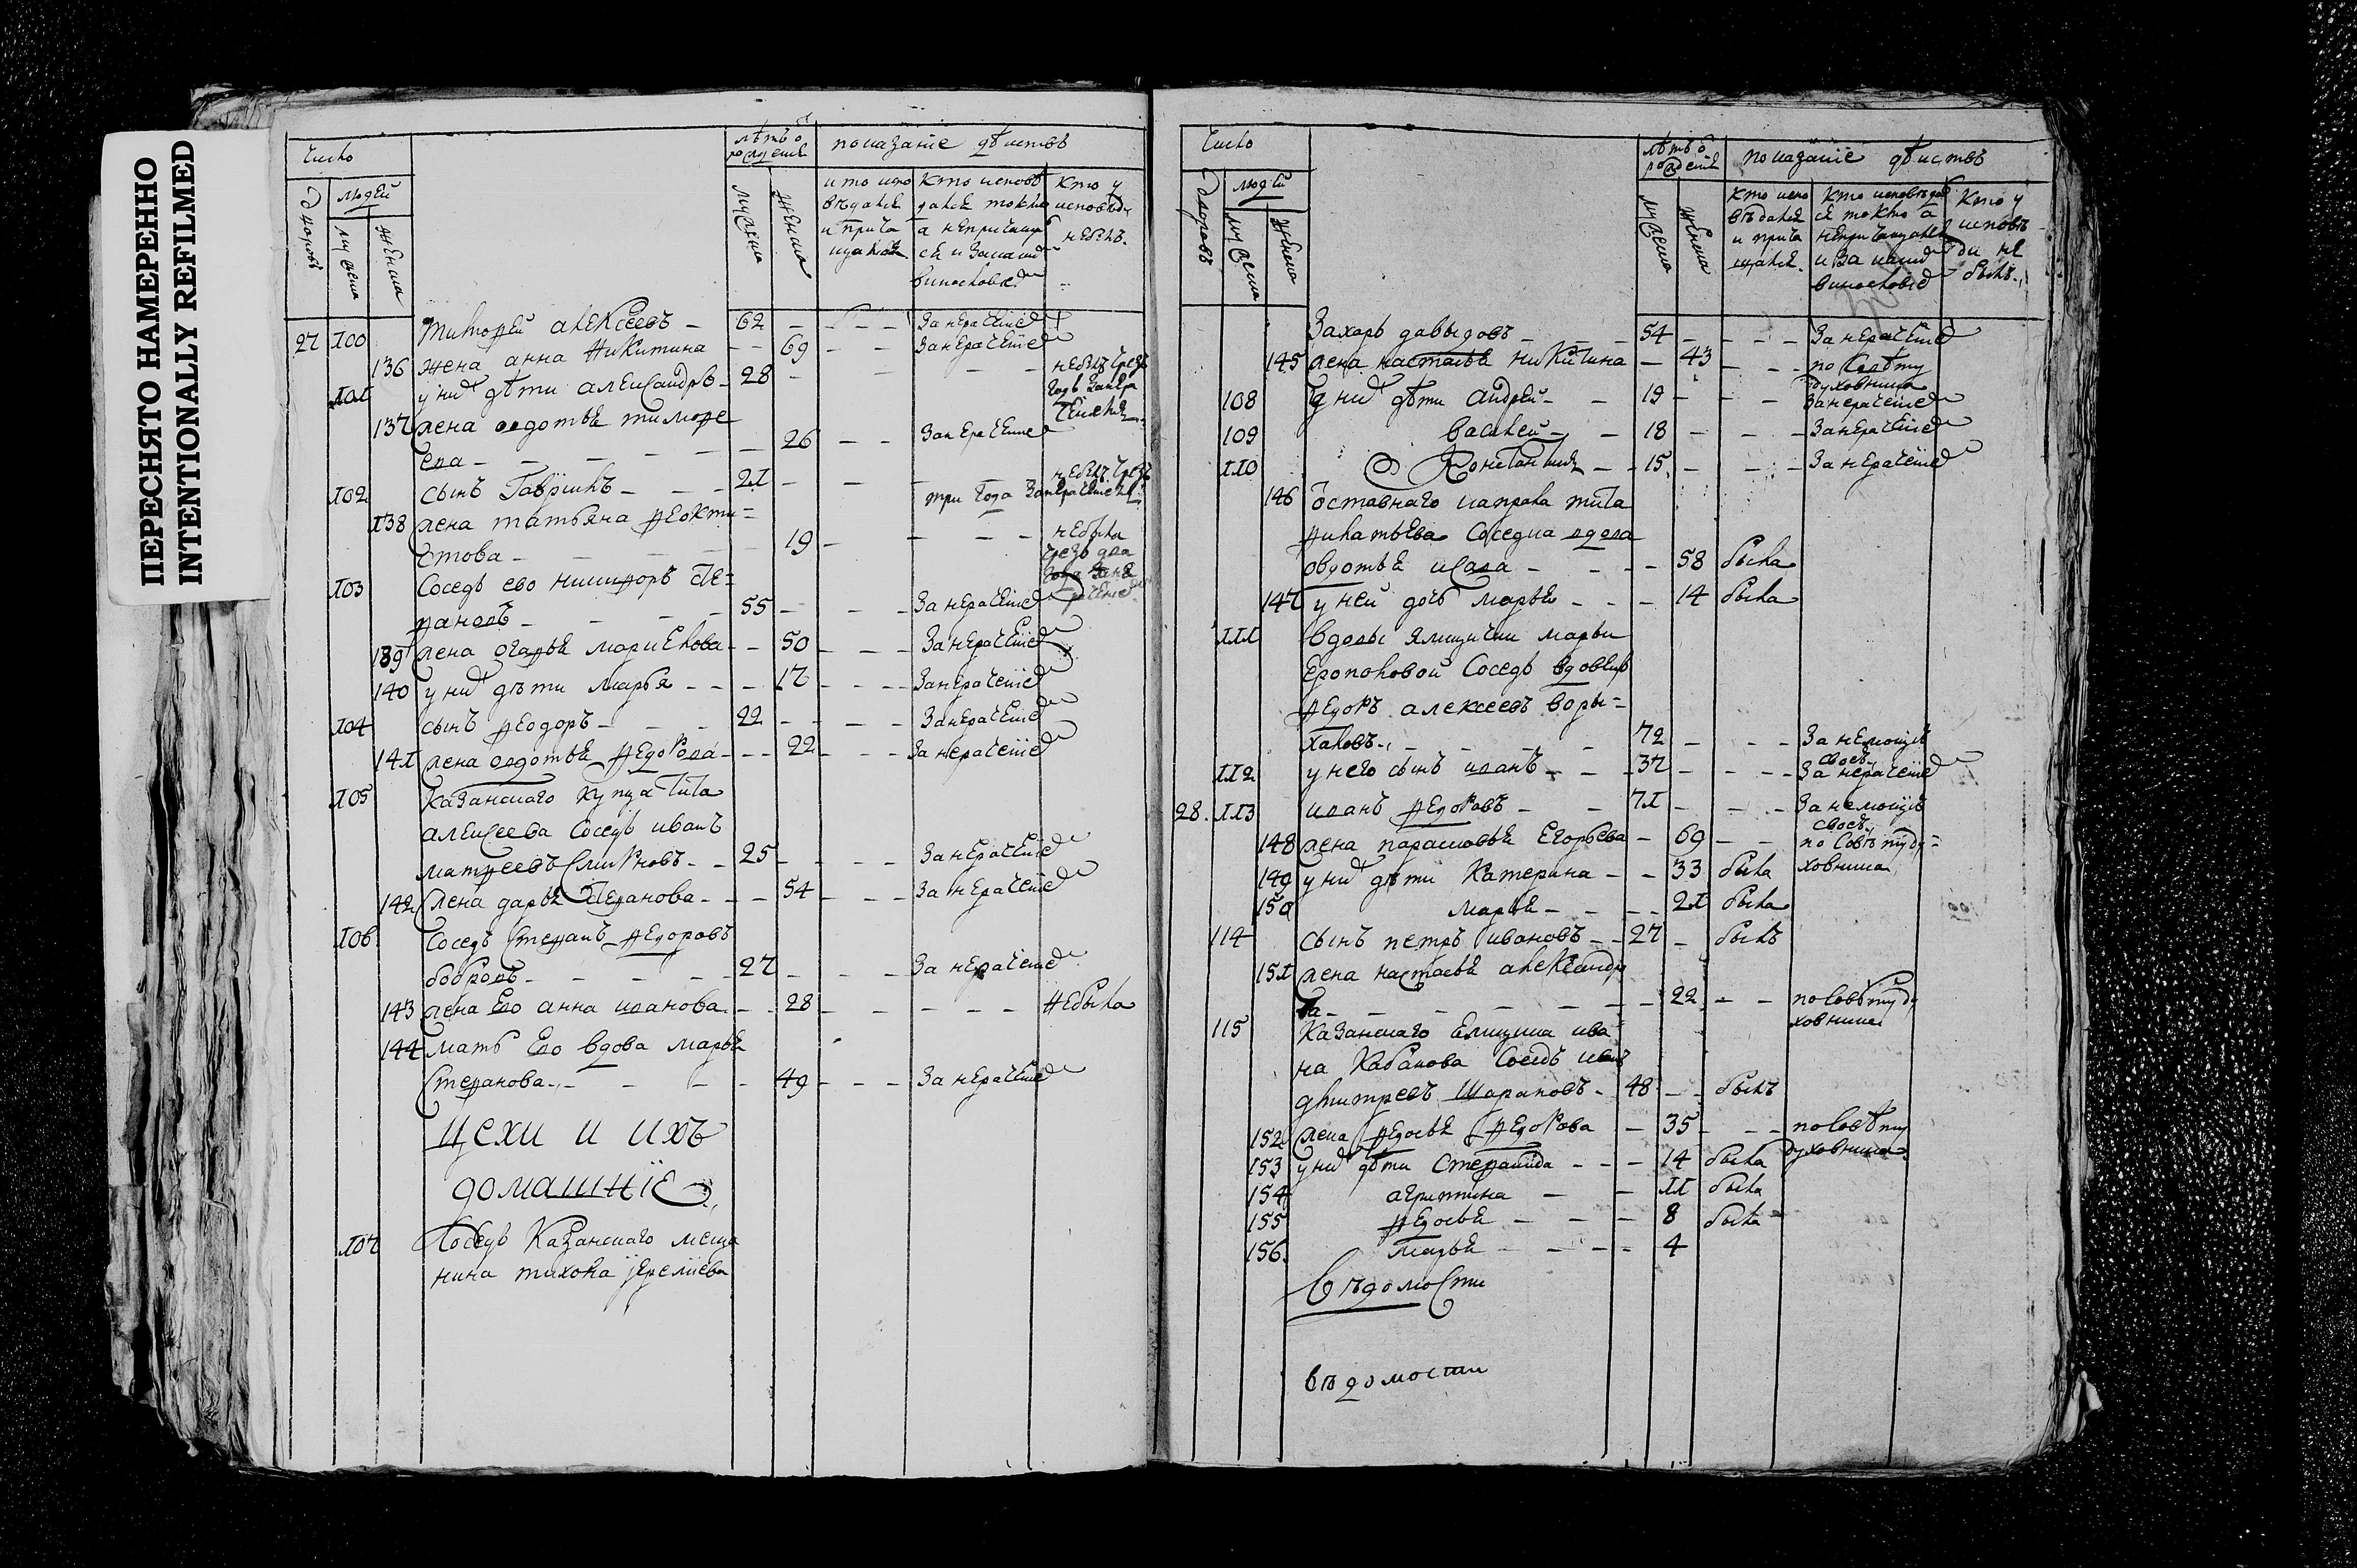 ПЕРЕСНЯТО НАМЕРЕННО
INTENTIONALLY REFILMED
Число
лѣтъ ѿ рожденїѧ
показанїе дѣиствъ
дворовъ
людей
мужеска
женска
мужеска
женска
кто испо
вѣдалсѧ
и прича
щалсѧ
кто исповѣ
далсѧ токмо
а непричащал
сѧ и закакимъ
винословїем
кто у
исповѣди
небылъ
27 100 Тимофей алеѯеевъ - 62 - - - За нерачение
136 жена анна Никитина - - 69 - - За нерачение
101 у них дѣти алеѯандръ - 28 - - - - небылъ чрезъ
годъ за нера
чением
137 жена авдотьѧ тимофе
ева - - - - - 26 - - За нерачение
102 сынъ Гаврилъ - - - 21 - - - небылъ чрезъ
три года за нерачением
138 жена татьяна феокти=
стова - - - - 19 - - - - небыла
чрезъ два
года за не
рачение
103 Соседъ ево никифоръ сте=
пановъ - - - - 55 - - - За нерачение
139 жена дарьѧ маркелова - - 50 - - - За нерачение
140 у них дѣти марья - - - 17 - - - За нерачение
104 сынъ феодоръ - - - 22 - - - - За нерачение
141 жена авдотьѧ федорова - - - 22 - - - За нерачение
105 Казанскаго купца тита
алеѯеева соседъ иванъ
матфеевъ смирновъ - - 25 - - - - За нерачение
142 жена дарьѧ степанова - - - 54 - - - За нерачение
106 Соседъ Степанъ федоровъ
бобровъ - - - - - 27 - - - За нерачение
143 жена ево анна иванова - - 28 - - - - - небыла
144 мать ево вдова марьѧ
Степанова - - - - - 49 - - - За нерачение
Цехи и ихъ
домашнїе
107 Соседъ Казанскаго меща
нина тихона
Число
лѣтъ ѿ рожденїѧ
показанїе дѣиствъ
дворовъ
людей
мужеска
женска
мужеска
женска
кто испо
вѣдалсѧ
и прича
щалсѧ
кто исповѣдал
сѧ токмо а
непричащалсѧ
и за каким
винословїем
кто у
исповѣ
ди не
былъ
Захаръ давыдовъ - - 54 - - - - За нерачение
145 жена настасьѧ никитина - 43 - - - по совѣту
духовника
108 У них дѣти андрей - - 19 - - - За нерачение
109 василей - - 18 - - - За нерачение
110 Константинъ - - 15 - - - За нерачение
146 ѿставнаго капрала тита
филатьева соседка вдова
авдотьѧ - - - - 58 была
147 у ней дочь марьѧ - - - 14 была
111 вдовы ямщички марьи
соседъ вдовецъ
федоръ алеѯеевъ воры=
халовъ - - - - 72 - - - За немощїю
своею
112 у него сынъ иванъ - - - 37 - - - За нерачение
28 113 иванъ федоровъ - - 71 - - - За немощїю
своею
148 жена парасковьѧ Егорьева - 69 - - по совѣту ду=
ховника
149 у них дѣти Катерина - - 33 была
150 марьѧ - - - - 21 была
114 сынъ петръ ивановъ - - 27 - былъ
151 жена настасьѧ алеѯандро
ва - - - - - - 22 - - по совѣту ду
ховника
115 Казанскаго ива
на соседъ иванъ
дмитреевъ Шарановъ - 48 - - былъ
152 жена федосьѧ федорова - 35 - - - по совѣту
духовника
153 у них дѣти Степанида - - - 14 была
154 агрипина - - 11 была
155 федосьѧ - - - 8 была
156 марьѧ - - - - 4
Вѣдомости
вѣдомости